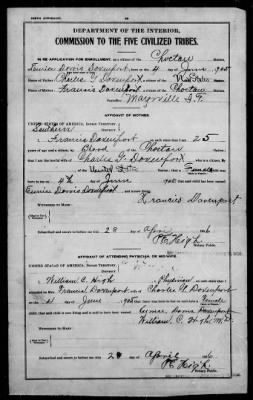 BIRTH AFFIDAVIT.
DEPARTMENT OF THE INTERIOR,
COMMISSION TO THE FIVE CIVILIZED TRIBES.
IN RE APPLICATION FOR ENROLLMENT, as a citizen of the Choctaw Nation,
Davenport, born on the 4 day of June, 1905
Name of Father: Charlie G Davenport a citizen of the United States Nation.
Name of Mother: Francis Davenport a citizen of the Choctaw Nation.
Postoffice Maysville I.T.
AFFIDAVIT OF MOTHER.
UNITED STATES OF AMERICA, Indian Territory,
Southern DISTRICT.
I, Francis Davenport, on oath state that I am 25
years of age and a citizen by Blood, of the Choctaw Nation,
that I am the lawful wife of Charlie G. Davenport, who is a citizen, by
of the United States Nation; that a Female child was
born to me on 4th day of June, 1905; that said child has been named
Davenport, and is now living.
Francis Davenport
WITNESSES TO MARK:
Subscribed and sworn to before me this 28 day of April, 1906
Notary Public.
AFFIDAVIT OF ATTENDING PHYSICIAN, OR MID-WIFE.
UNITED STATES OF AMERICA, Indian Territory,
DISTRICT.
I, William C. High, a Physician, on oath state that I
attended on Mrs. Francis Davenport, wife of Charlie G. Davenport
on the 4 day of June, 1905; that there was born to her on said date a Female
child; that said child is now living and is said to have been named Davenport
William C. High M.D.
WITNESSES TO MARK:
Subscribed and sworn to before me this 28 day of April, 1906
Notary Public.